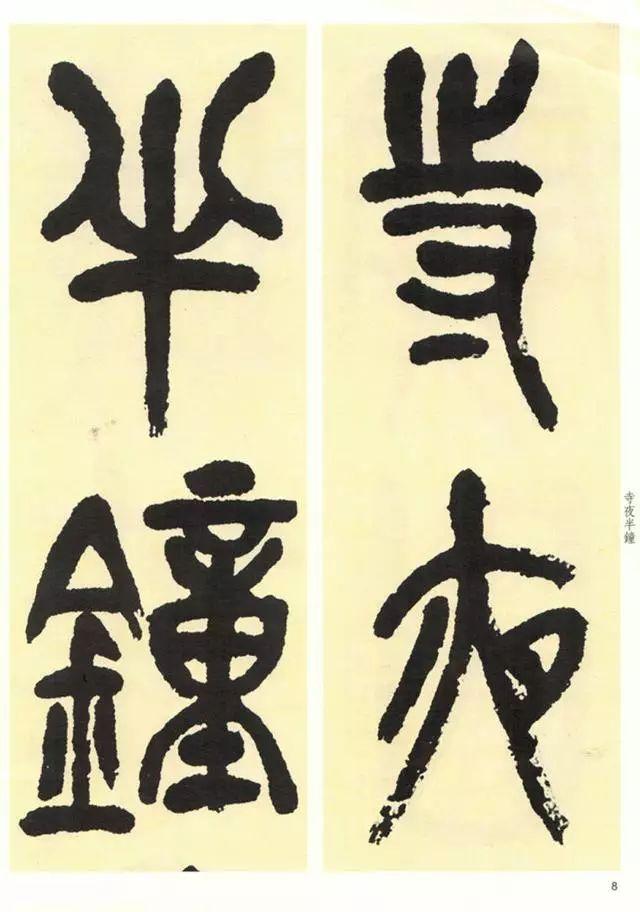 寺夜
半鐘
寺夜半鐘
8